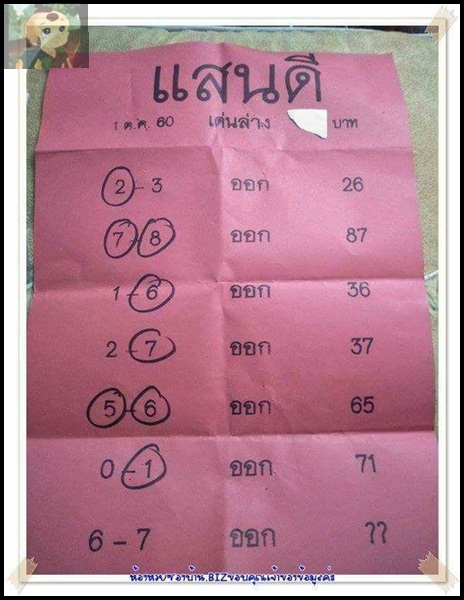 แสนดี
1 ต.ค. 60 เด่นล่าง บาท
2 - 3 ออก 26
7 - 8 ออก 87
1 - 6 ออก 36
2 - 7 ออก 37
5 - 6 ออก 65
0 - 1 ออก 71
6 - 7 ออก ??
ห้องหวยชาวบ้าน.BIZขอบคุณเจ้าของข้อมูลค่ะ